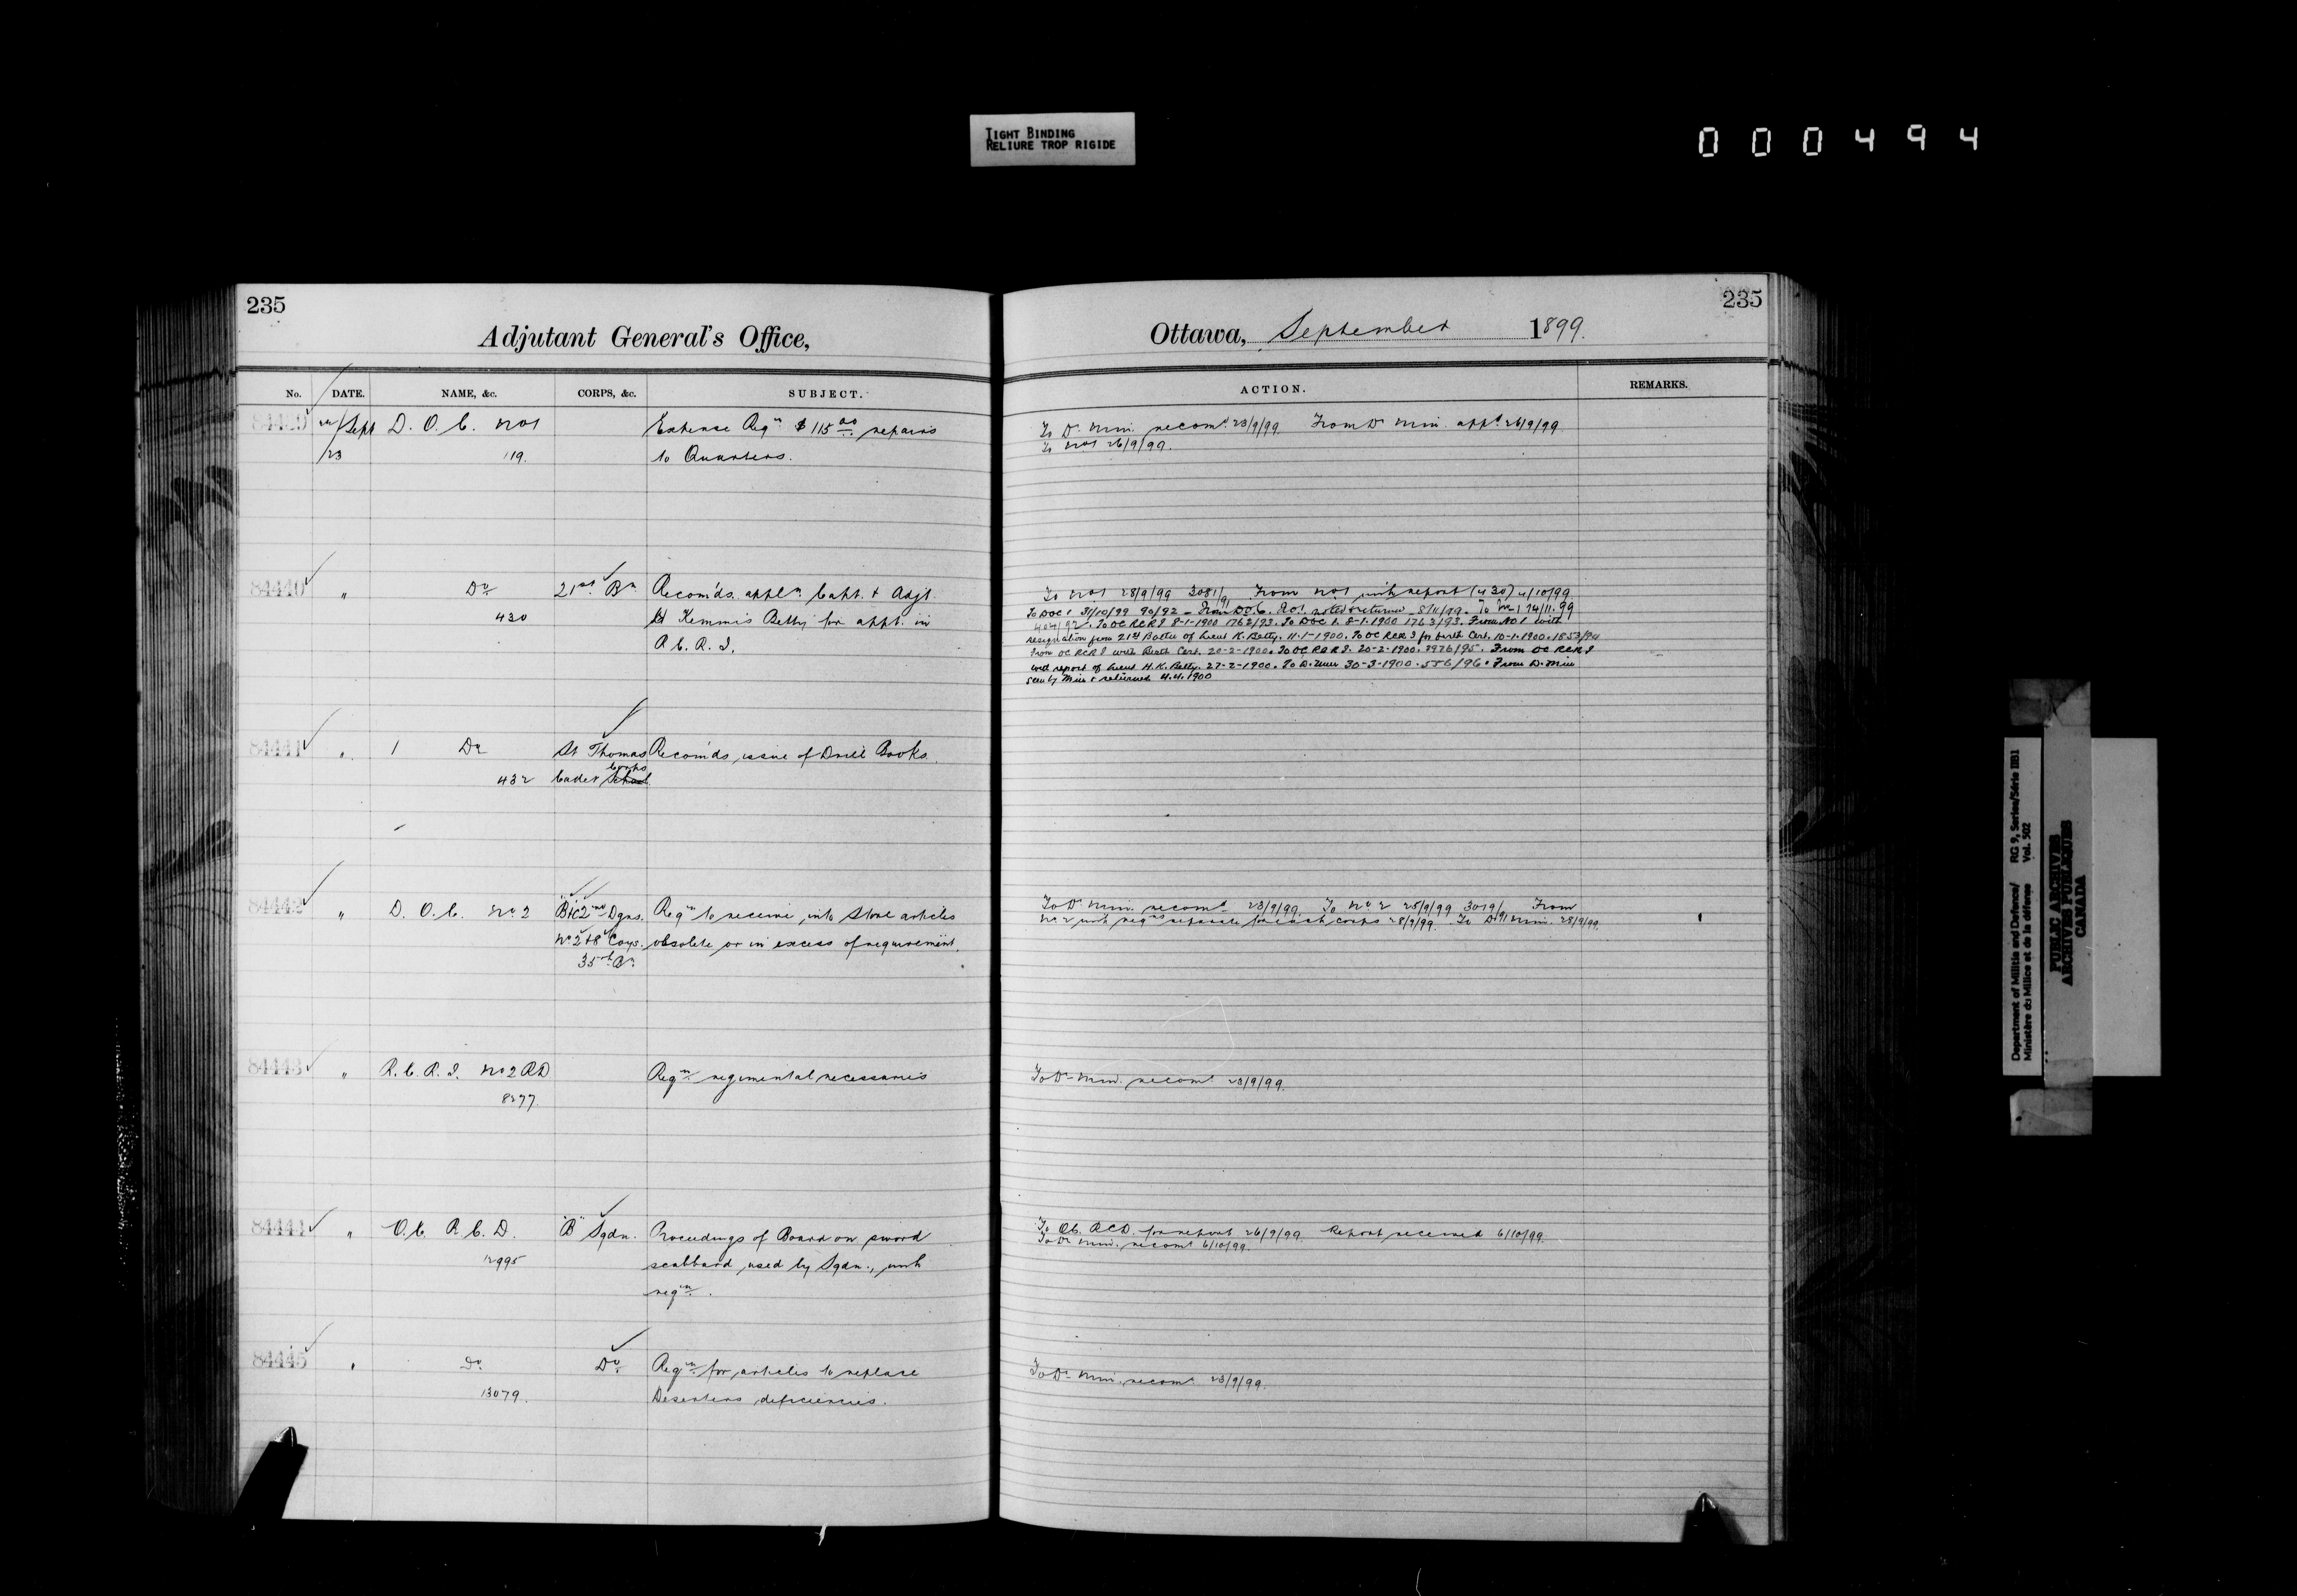 TIGHT BINDING
RELIURE TROP RIGIDE
000494
235
Adjutant General's Office,
No. DATE. NAME, &c. CORPS, &c. SUBJECT.
84439 22/Sept D. O. C. No 1 Expense Reqn $115 00 repairs
/23 119. to Quarters.
84440 " Do 21st Bn Recom'ds. appln Capt. & Adjt.
430 H Kemmis Betty for appt. in
R C. R. I.
84441 " 1 Do St Thomas Recom'ds issue of Drill Books.
Corps
432 Cadet School
84442 " D. O. C. No 2 B & C 2nd Dgns. Reqn to receive into Store articles
No 2 & 8 Coys. obsolete or in excess of requirement.
35th Bn
84443 " R. C. R. I. No 2 RD Reqn regimental necessaries
8277.
84444 " O. C. R. C. D. "B" Sqdn. Proceedings of Board on sword
12995 scabbard used by Sqdn., with
reqn.
84445 " Do Do Reqn for articles to replace
13079. Deserters deficiencies.
235
Ottawa, September 1899.
ACTION. REMARKS.
To D. Min. recomd 23/9/99. From D Min. appd 26/9/99
To No 1 26/9/99.
To No 1 28/9/99 3081/91 From No 1 with report (430) 4/10/99
To DOC 1 31/10/99 90/92 - From D.O.C. No 1. noted & returned 8/11/99. To No 1 14/11.99
404/92. To OC RCRI 8-1-1900 1762/93. To DOC 1. 8-1-1900 1763/93. From NO 1 with
resignation from 21st Battn of Lieut K. Betty. 11-1-1900. To OC RCRI for birth Cert. 10-1-1900. 1853/94
From OC RCRI with Birth Cert. 20-2-1900. To OC RCRI. 20-2-1900. 3976/95. From OC RCRI
with report of Lieut H.K. Betty. 27-2-1900. To D. Min 30-3-1900. 556/96. From D. Min
seen by Min & returned 4.4.1900
To D. Min. recomd 23/9/99. To No 2 25/9/99 3019/91 From
No 2 with reqns separate for each corps 28/9/99. To D. Min. 28/9/99.
To D. Min. recomd 23/9/99.
To OC. RCD. for report 26/9/99. Report received 6/10/99.
To D. Min. recomd 6/10/99.
To D. Min. recomd 23/9/99.
Department of Militia and Defence/ RG 9, Series/Série IIB1
Ministère de la Milice et de la défense Vol. 502
PUBLIC ARCHIVES
ARCHIVES PUBLIQUES
CANADA